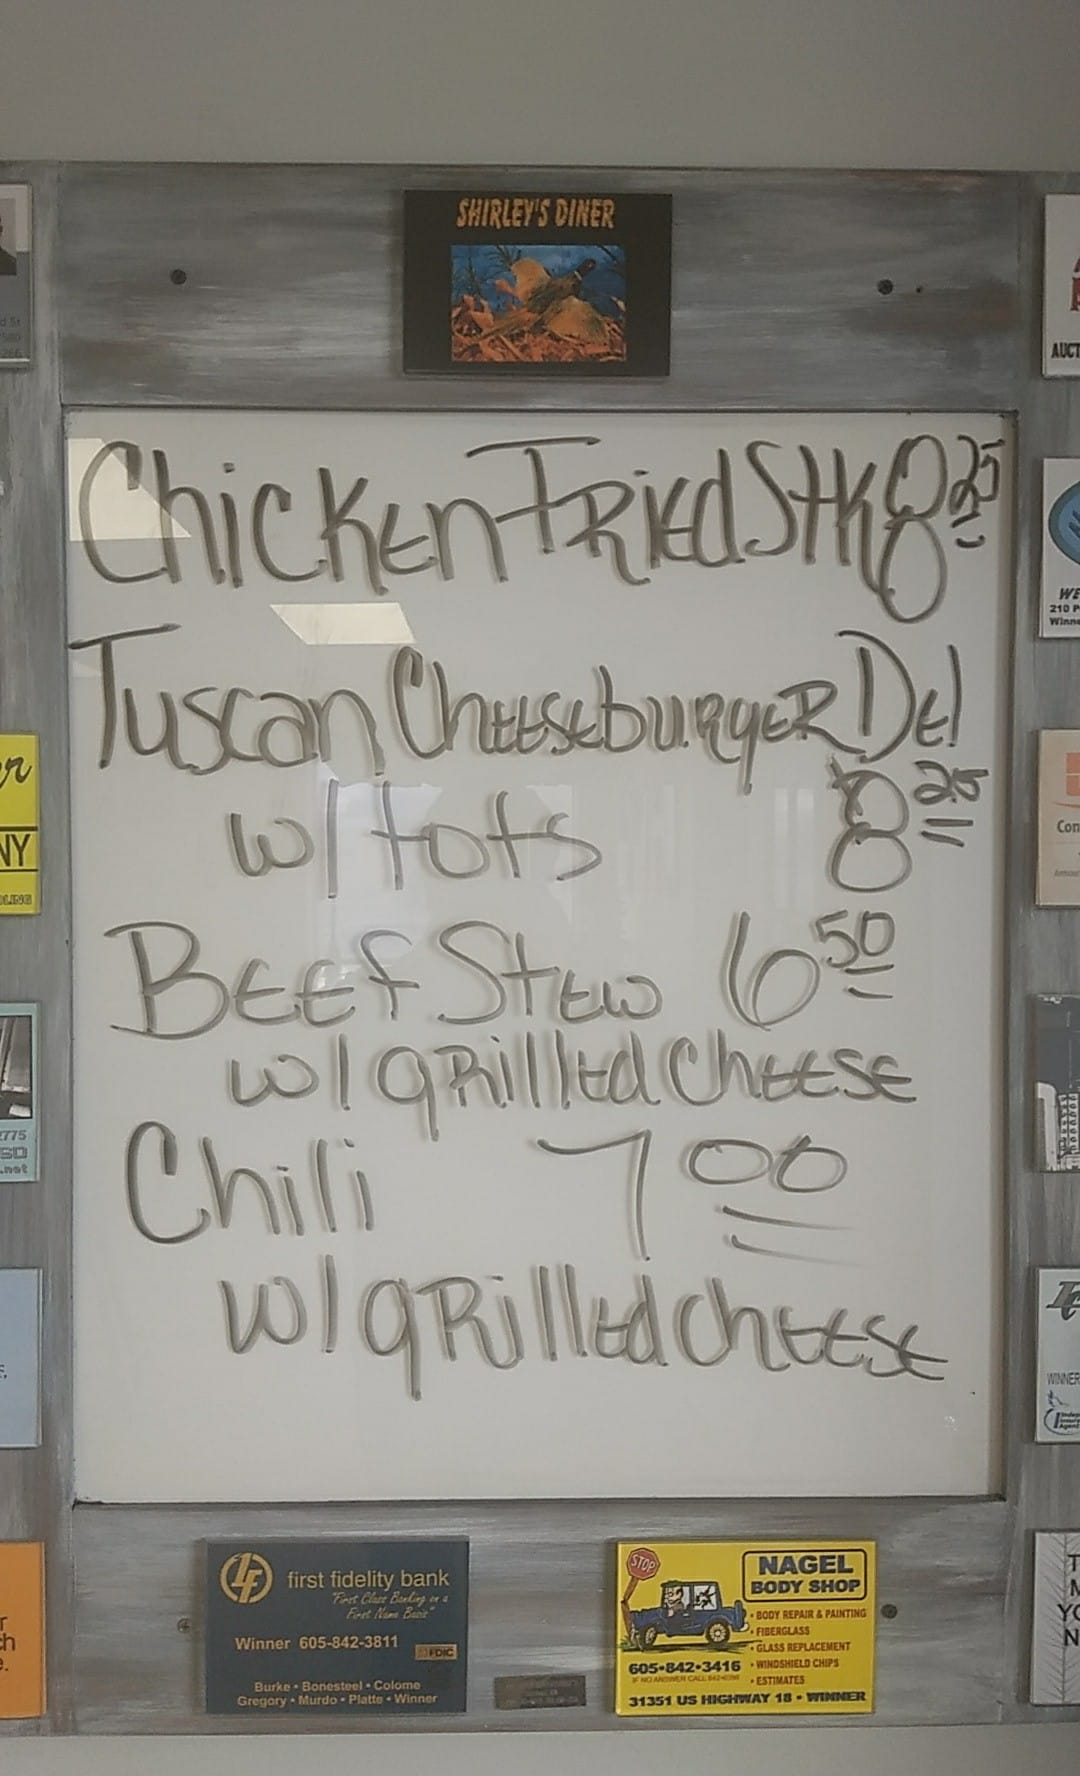 SHIRLEY'S DINER
Chicken Fried Stk 8 25
Tuscan Cheeseburger Del
w/ tots 8 25
Beef Stew 6 50
w/ grilled cheese
Chili 7 00
w/ grilled cheese
first fidelity bank
"First Class Banking on a
First Name Basis"
Winner 605-842-3811
FDIC
Burke • Bonesteel • Colome
Gregory • Murdo • Platte • Winner
STOP
NAGEL
BODY SHOP
• BODY REPAIR & PAINTING
• FIBERGLASS
• GLASS REPLACEMENT
• WINDSHIELD CHIPS
• ESTIMATES
605•842•3416
31351 US HIGHWAY 18 • WINNER
AUCT
WE
210 P
Winne
Con
WINNER
NY
2775
.net